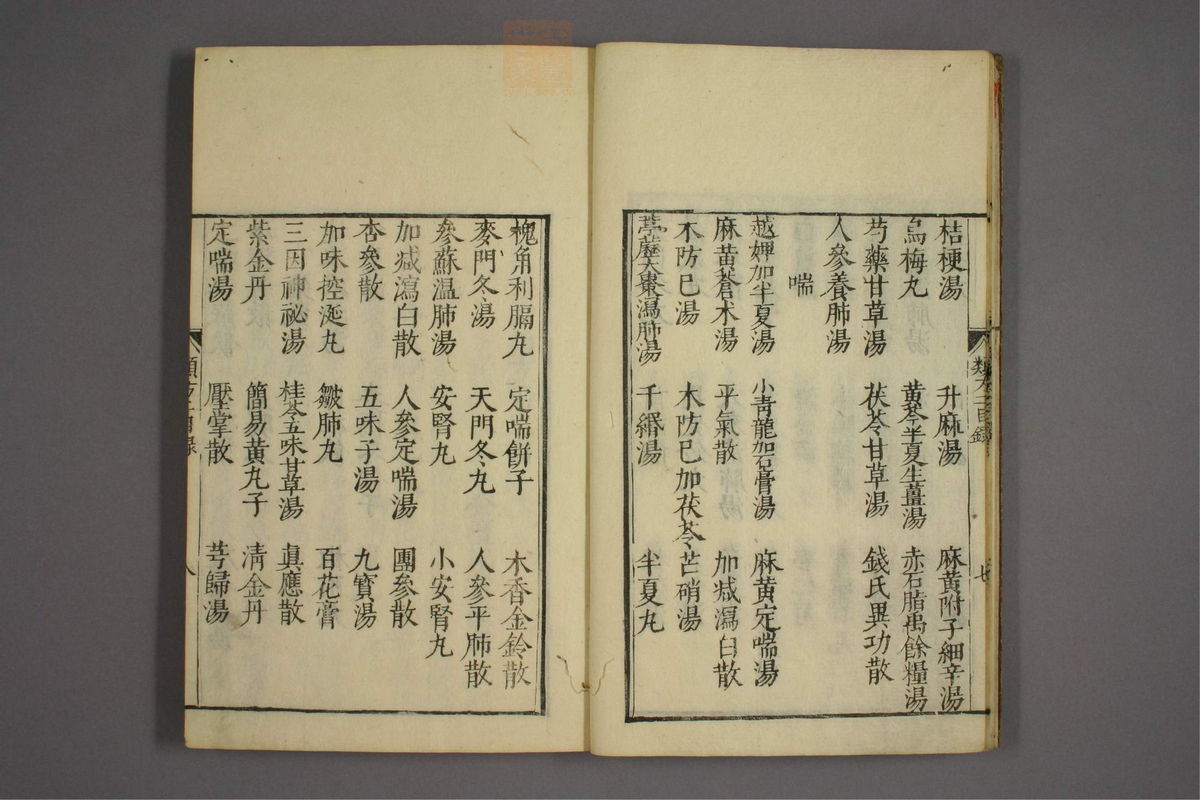 桔梗湯　升麻湯　麻黃附子細辛湯
烏梅丸　黃芩半夏生薑湯　赤石脂禹餘糧湯
芍藥甘草湯　茯苓甘草湯　錢氏異功散
人參養肺湯
喘
越婢加半夏湯　小青龍加石膏湯　麻黃定喘湯
麻黃蒼朮湯　平氣散　加減瀉白散
木防已湯　木防已加茯苓芒硝湯
葶藶大棗瀉肺湯　千緡湯　半夏丸
槐角利膈丸　定喘餅子　木香金鈴散
麥門冬湯　天門冬丸　人參平肺散
參蘇溫肺湯　安腎丸　小安腎丸
加減瀉白散　人參定喘湯　團參散
杏參散　五味子湯　九寶湯
加味控涎丸　皺肺丸　百花膏
三因神祕湯　桂苓五味甘草湯　眞應散
紫金丹　簡易黃丸子　清金丹
定喘湯　壓掌散　芎歸湯
類方目錄　八